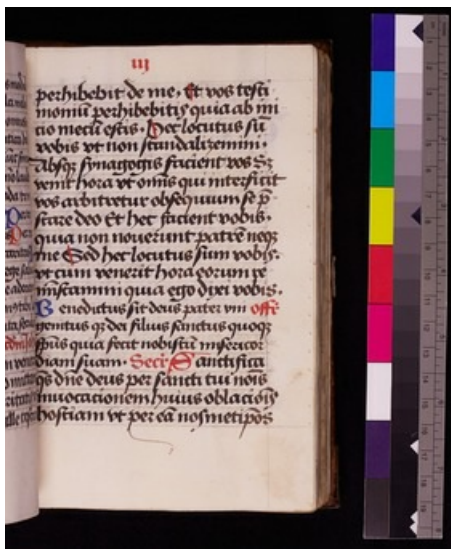 iij
perhibebit de me. Et vos testi
moniũ perhibebitis quia ab ini
cio mecũ estis. Hec locutus sũ
vobis vt non scandalizemini.
Absq̃ synagogis facient vos Sz
venit hora vt omnis qui interficit
vos arbitretur obsequium se p̃
stare deo Et hec facient vobis.
quia non nouerunt patrẽ neq̃
me Sed hec locutus sum vobis.
vt cum venerit hora eorum re
miniscamini quia ego dixi vobis.
Benedictus sit deus pater vni offẽ
genitus qz dei filius sanctus quoq̃
sp̃us quia fecit nobiscũ misericor
diam suam. Secr̃ Sanctifica
q̃s dñe deus per sancti tui nois
inuocationem huius oblaciõis
hostiam vt per eã nosmetip̃os